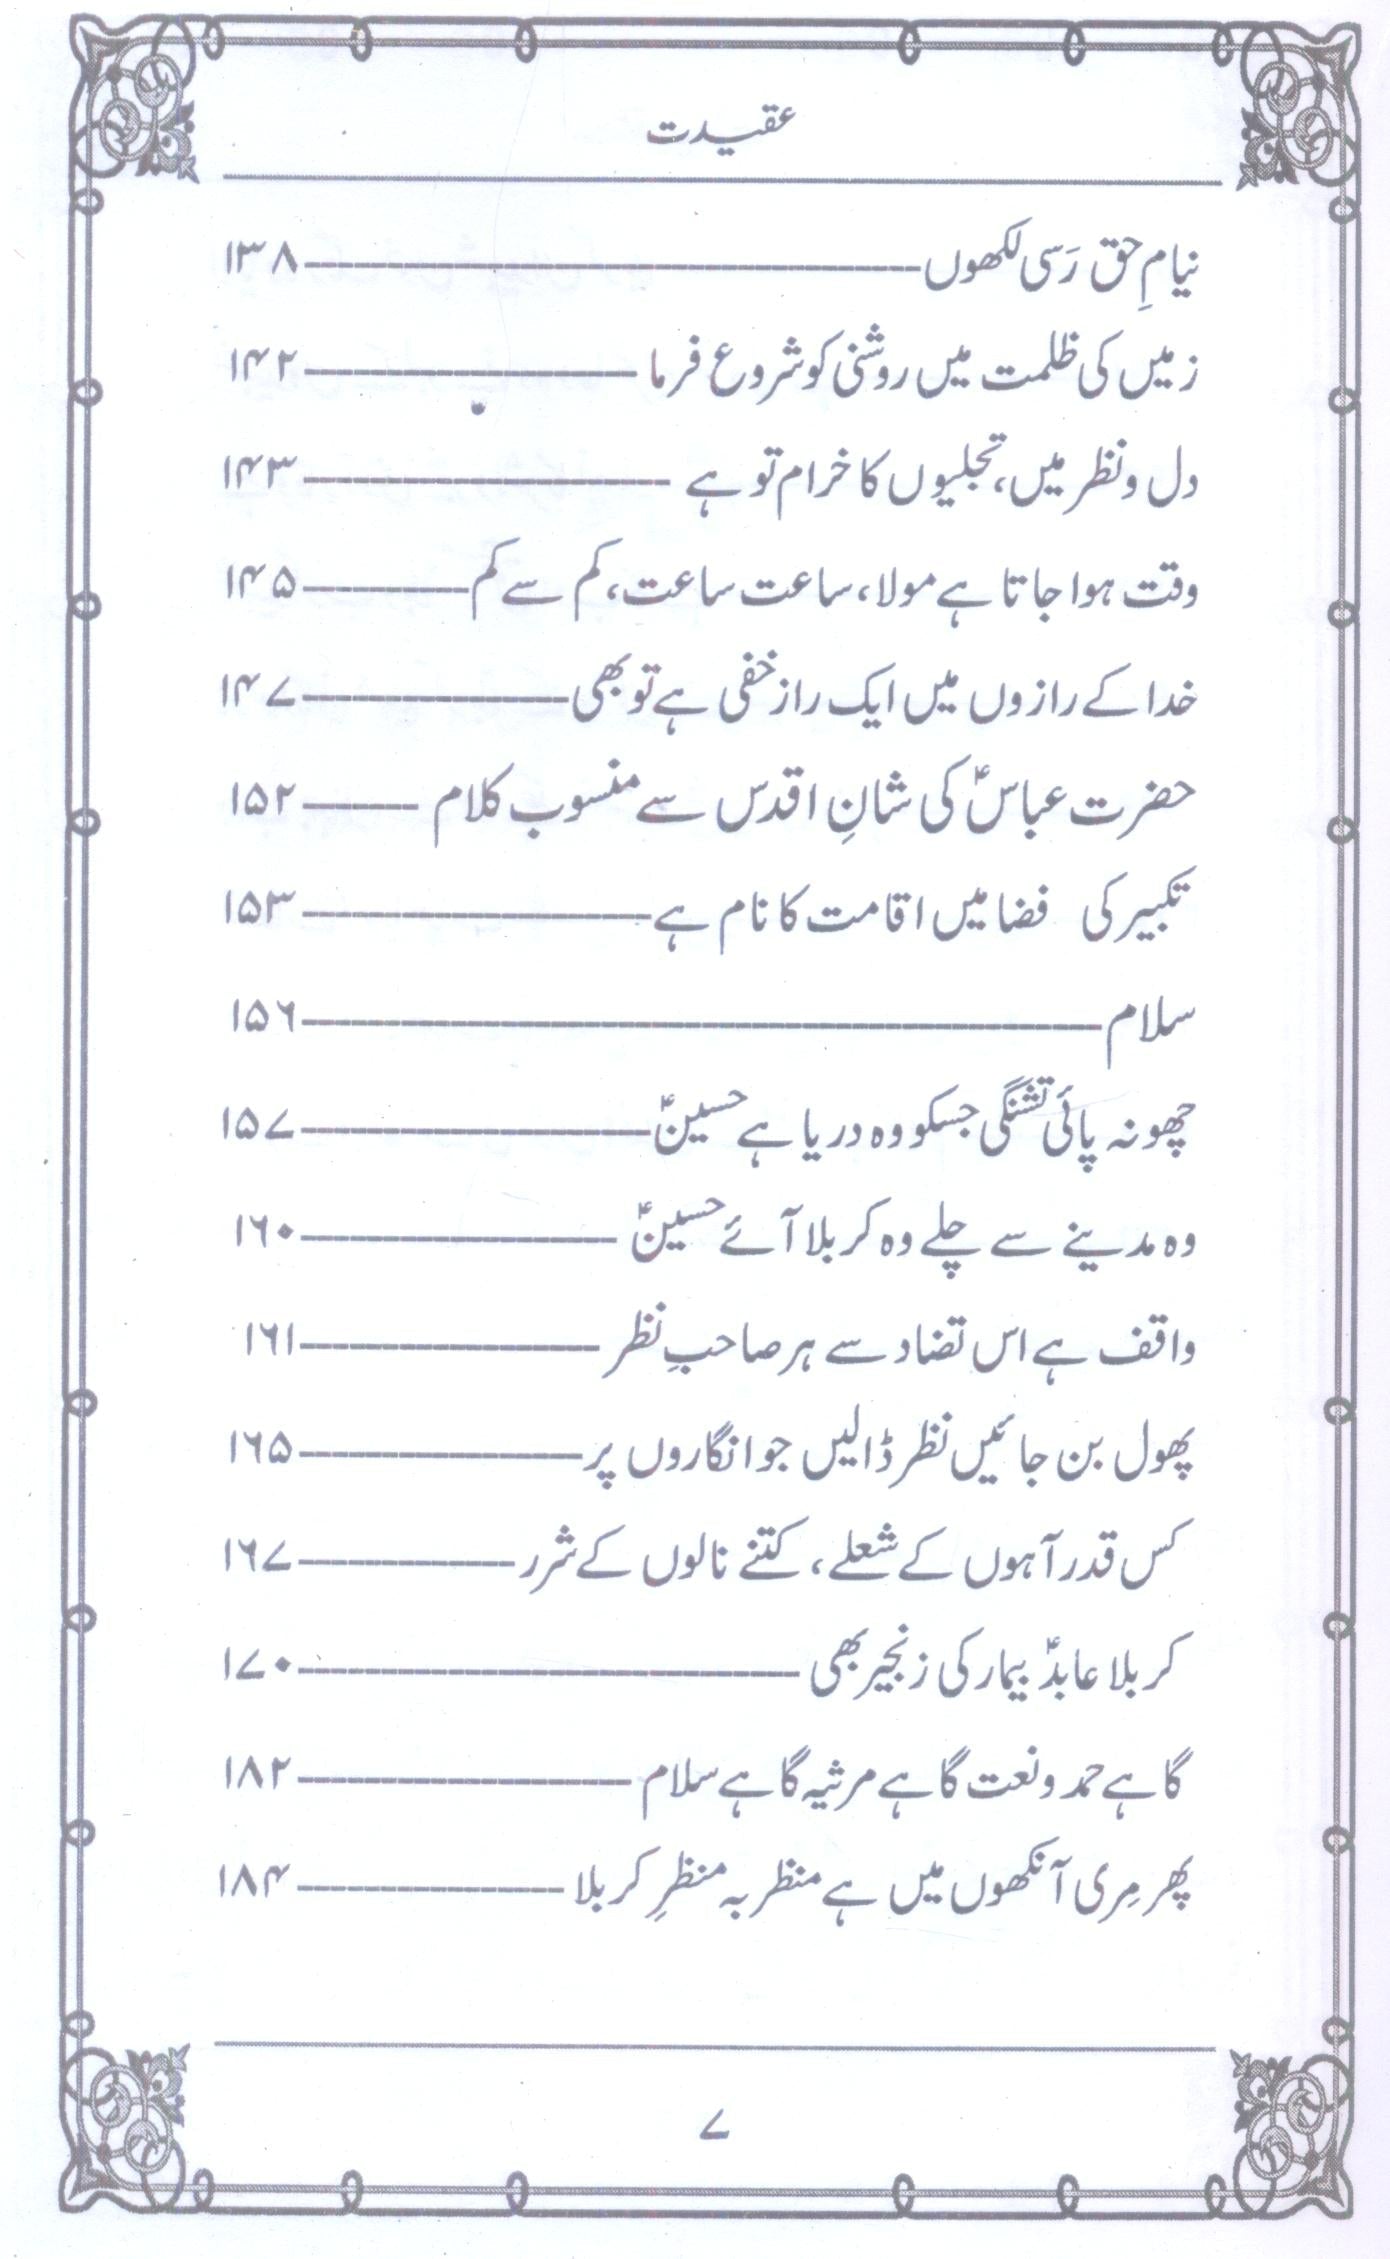 عقیدت
نیامِ حق رَسی لکھوں ۱۳۸
زمیں کی ظلمت میں روشنی کو شروع فرما ۱۴۲
دل و نظر میں، تجلیوں کا خرام تو ہے ۱۴۳
وقت ہوا جاتا ہے مولا، ساعت ساعت، کم سے کم ۱۴۵
خدا کے رازوں میں ایک راز خفی ہے تو بھی ۱۴۷
حضرت عباسؑ کی شانِ اقدس سے منسوب کلام ۱۵۲
تکبیر کی فضا میں اقامت کا نام ہے ۱۵۳
سلام ۱۵۶
چھو نہ پائی تشنگی جسکو وہ دریا ہے حسینؑ ۱۵۷
وہ مدینے سے چلے وہ کربلا آئے حسینؑ ۱۶۰
واقف ہے اس تضاد سے ہر صاحبِ نظر ۱۶۱
پھول بن جائیں نظر ڈالیں جو انگاروں پر ۱۶۵
کس قدر آہوں کے شعلے، کتنے نالوں کے شرر ۱۶۷
کربلا عابدؑ بیمار کی زنجیر بھی ۱۷۰
گاہے حمد و نعت گاہے مرثیہ گاہے سلام ۱۸۲
پھر مِری آنکھوں میں ہے منظر بہ منظرِ کربلا ۱۸۴
۷